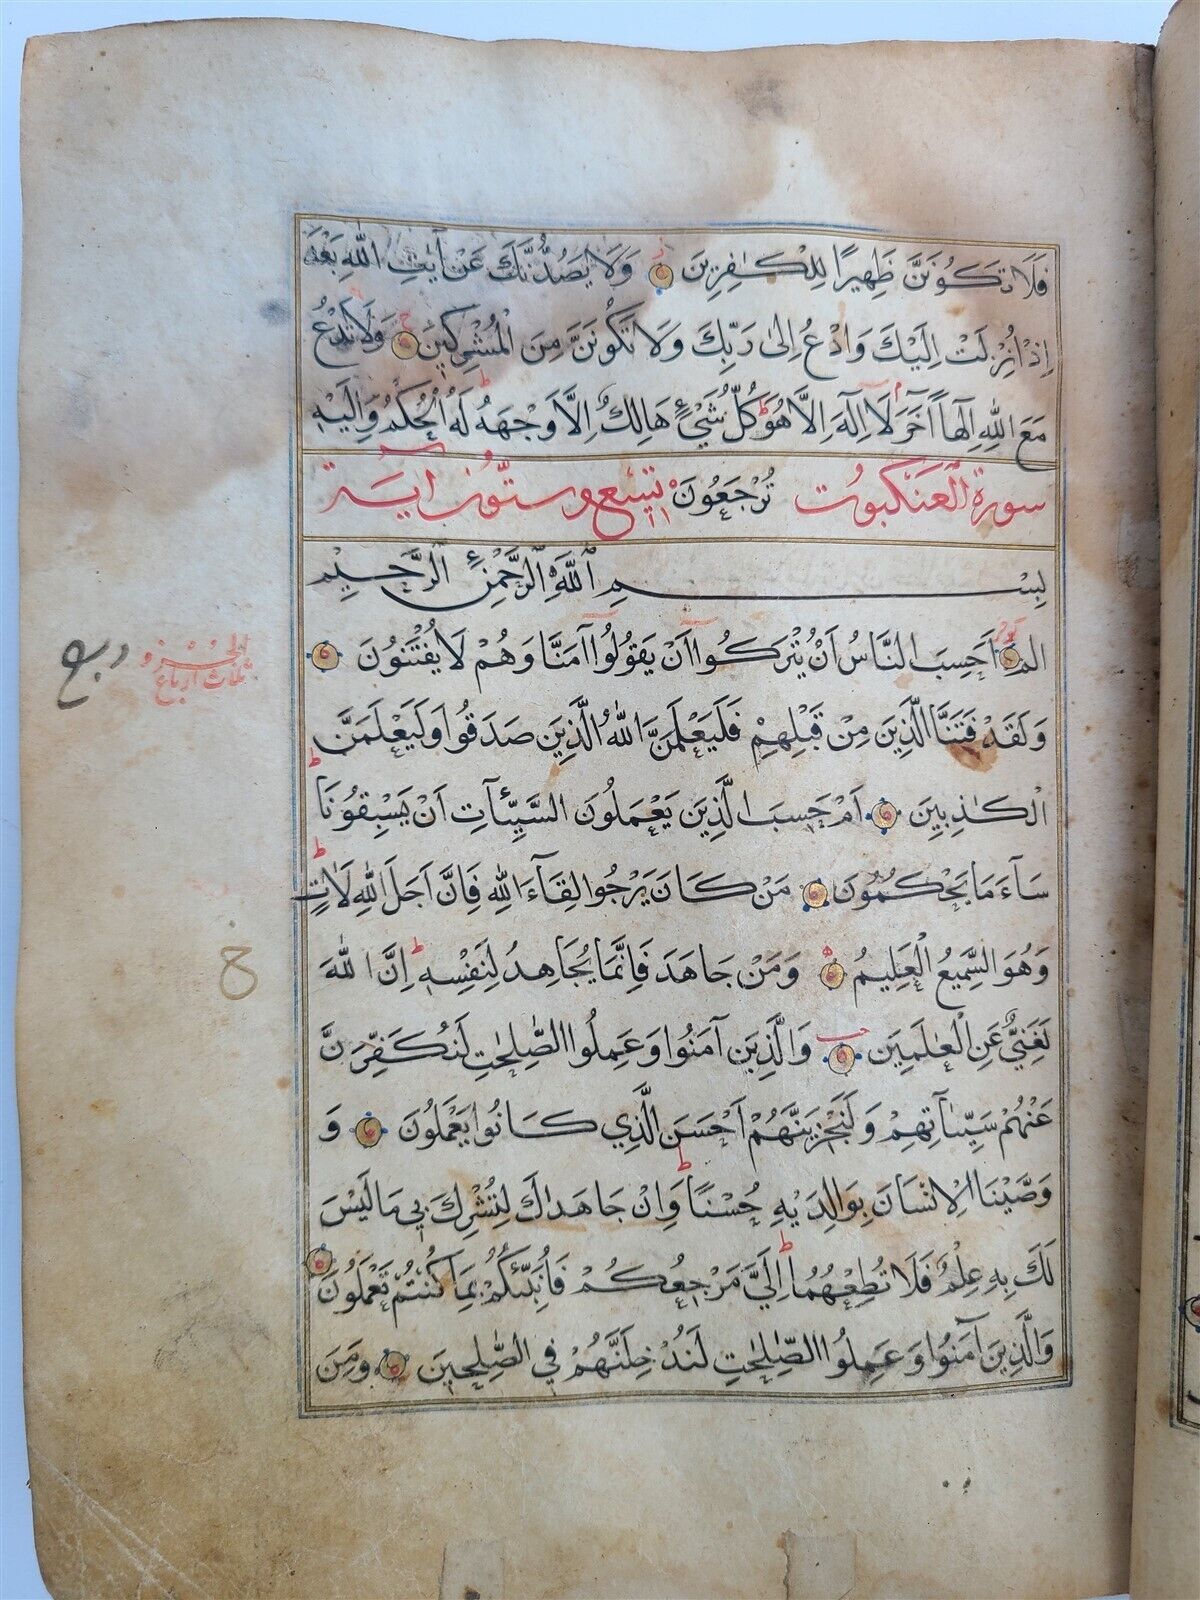 فَلَا تَكُونَنَّ ظَهِيرًا لِلْكَافِرِينَ وَلَا يَصُدُّنَّكَ عَنْ آيَاتِ اللهِ بَعْدَ
اِذْ اُنْزِلَتْ اِلَيْكَ وَادْعُ اِلٰى رَبِّكَ وَلَا تَكُونَنَّ مِنَ الْمُشْرِكِينَ وَلَا تَدْعُ
مَعَ اللهِ اِلٰهاً آخَرَ لَا اِلٰهَ اِلَّا هُوَ كُلُّ شَيْءٍ هَالِكٌ اِلَّا وَجْهَهُ لَهُ الْحُكْمُ وَاِلَيْهِ
سورة العنكبوت تُرْجَعُونَ تسع وستون آية
بِسْمِ اللهِ الرَّحْمٰنِ الرَّحِيمِ
الم اَحَسِبَ النَّاسُ اَنْ يُتْرَكُوا اَنْ يَقُولُوا آمَنَّا وَهُمْ لَا يُفْتَنُونَ
الحزب
ثلاث ارباع
وَلَقَدْ فَتَنَّا الَّذِينَ مِنْ قَبْلِهِمْ فَلَيَعْلَمَنَّ اللهُ الَّذِينَ صَدَقُوا وَلَيَعْلَمَنَّ
الْكَاذِبِينَ اَمْ حَسِبَ الَّذِينَ يَعْمَلُونَ السَّيِّئَاتِ اَنْ يَسْبِقُونَا
سَآءَ مَا يَحْكُمُونَ مَنْ كَانَ يَرْجُوا لِقَآءَ اللهِ فَاِنَّ اَجَلَ اللهِ لَاٰتٍ
وَهُوَ السَّمِيعُ الْعَلِيمُ وَمَنْ جَاهَدَ فَاِنَّمَا يُجَاهِدُ لِنَفْسِهِ اِنَّ اللهَ
لَغَنِيٌّ عَنِ الْعَالَمِينَ وَالَّذِينَ آمَنُوا وَعَمِلُوا الصَّالِحَاتِ لَنُكَفِّرَنَّ
عَنْهُمْ سَيِّئَاتِهِمْ وَلَنَجْزِيَنَّهُمْ اَحْسَنَ الَّذِي كَانُوا يَعْمَلُونَ وَ
وَصَّيْنَا الْاِنْسَانَ بِوَالِدَيْهِ حُسْنًا وَاِنْ جَاهَدَاكَ لِتُشْرِكَ بِي مَا لَيْسَ
لَكَ بِهِ عِلْمٌ فَلَا تُطِعْهُمَا اِلَيَّ مَرْجِعُكُمْ فَاُنَبِّئُكُمْ بِمَا كُنْتُمْ تَعْمَلُونَ
وَالَّذِينَ آمَنُوا وَعَمِلُوا الصَّالِحَاتِ لَنُدْخِلَنَّهُمْ فِي الصَّالِحِينَ وَمِنَ